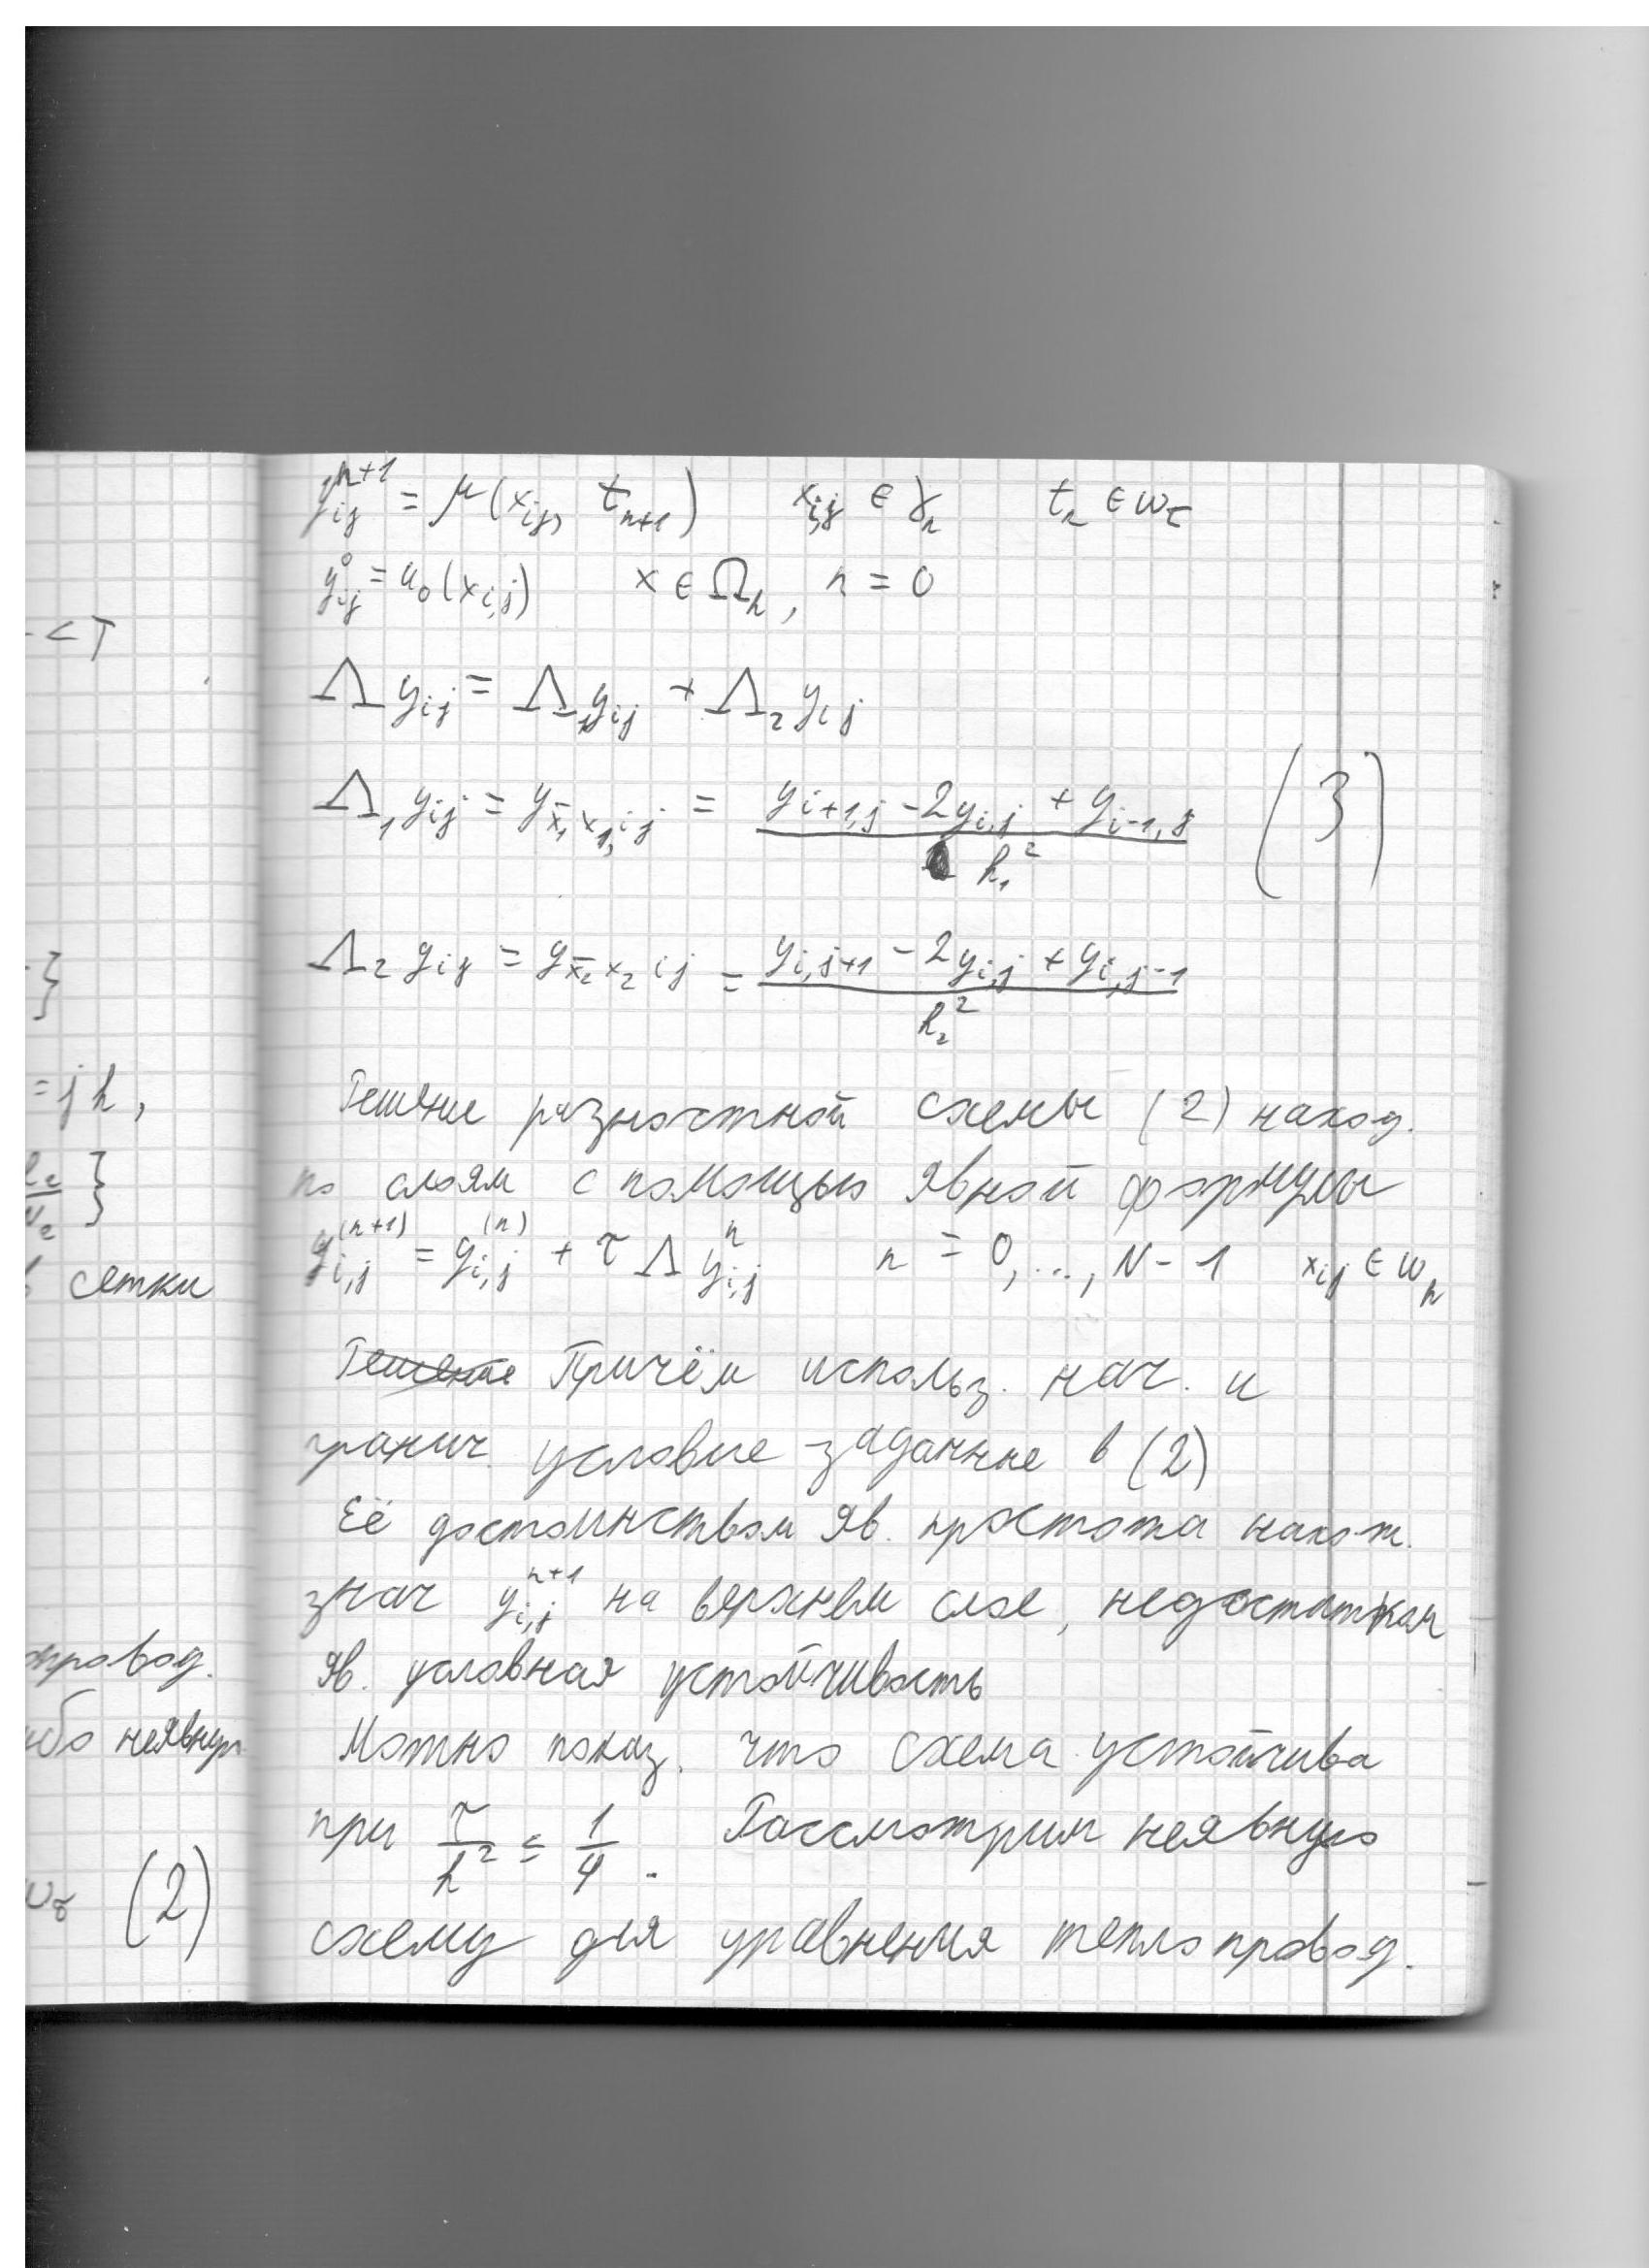 < T
}
= j h,
l₂/N₂ }
сетки
провод.
либо неявную
(2)
y_{ij}^{n+1} = μ(x_{ij}, t_{n+1}) x_{i,j} ∈ γ_h t_n ∈ ω_τ
y_{ij}^0 = u_0(x_{i,j}) x ∈ Ω_h, n = 0
Λ y_{ij} = Λ_1 y_{ij} + Λ_2 y_{ij}
Λ_1 y_{ij} = y_{x̄_1 x_1, ij} = (y_{i+1,j} - 2y_{i,j} + y_{i-1,j}) / h_1^2 (3)
Λ_2 y_{ij} = y_{x̄_2 x_2 ij} = (y_{i,j+1} - 2y_{i,j} + y_{i,j-1}) / h_2^2
Решение разностной схемы (2) наход.
по слоям с помощью явной формулы
y_{i,j}^{(n+1)} = y_{i,j}^{(n)} + τ Λ y_{i,j}^n n = 0,..., N - 1 x_{ij} ∈ ω_h
Решение Причём использ. нач. и
гранич. условие заданные в (2)
Её достоинством яв. простота нахож.
знач y_{i,j}^{n+1} на верхнем слое, недостатком
яв. условная устойчивость
Можно показ. что схема устойчива
при τ/h^2 ≤ 1/4. Рассмотрим неявную
схему для уравнения теплопровод.